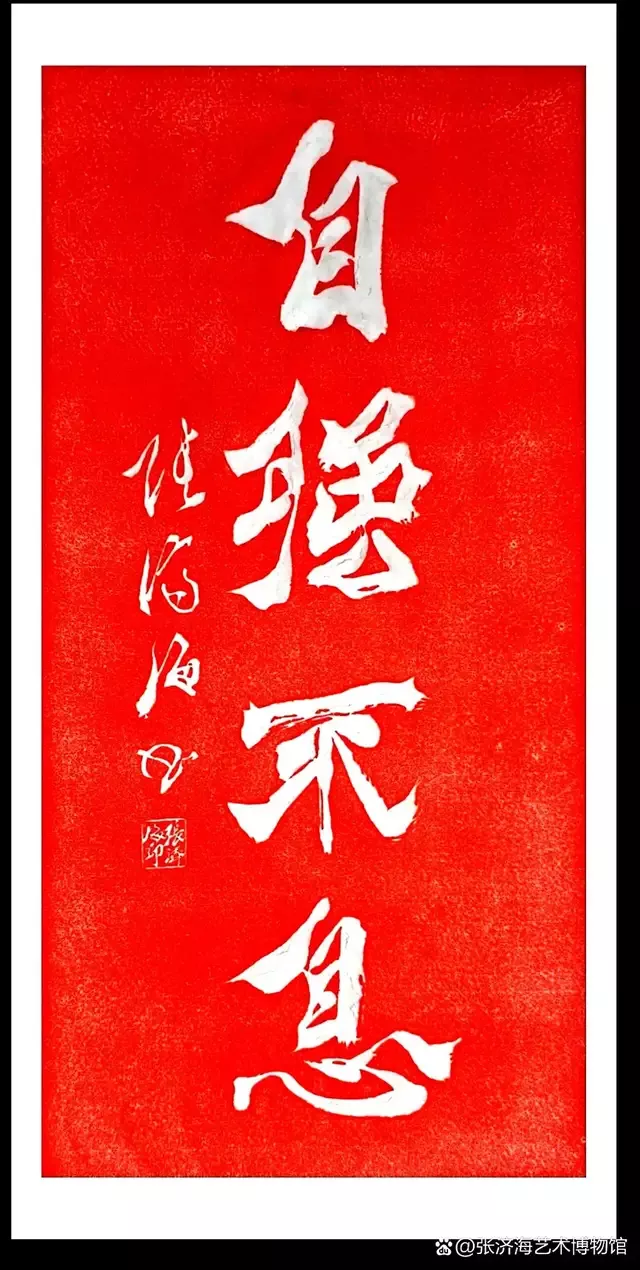 自强不息
张济海书
张济海印
@张济海艺术博物馆